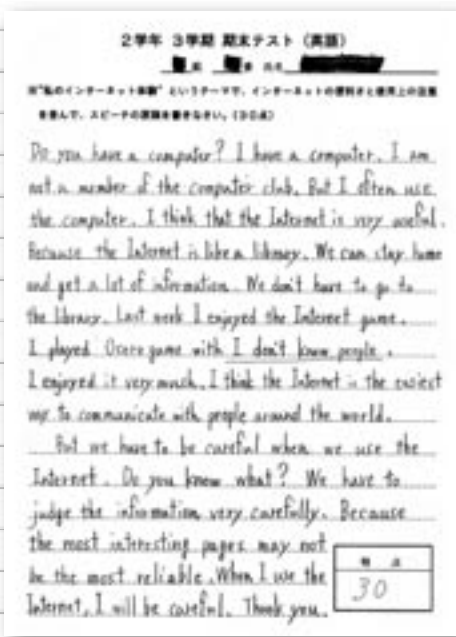 2学年 3学期 期末テスト (英語)
組 番 氏名
※"私のインターネット体験" というテーマで、インターネットの便利さと使用上の注意
を含んで、スピーチの原稿を書きなさい。(30点)
Do you have a computer? I have a computer. I am
not a member of the computer club. But I often use
the computer. I think that the Internet is very useful.
Because the Internet is like a library. We can stay home
and get a lot of information. We don't have to go to
the library. Last week I enjoyed the Internet game.
I played Osero game with I don't know people.
I enjoyed it very much. I think the Internet is the easiest
way to communicate with people around the world.
But we have to be careful when we use the
Internet. Do you know what? We have to
judge the information very carefully. Because
the most interesting pages may not
be the most reliable. When I use the
Internet, I will be careful. Thank you.
得 点
30